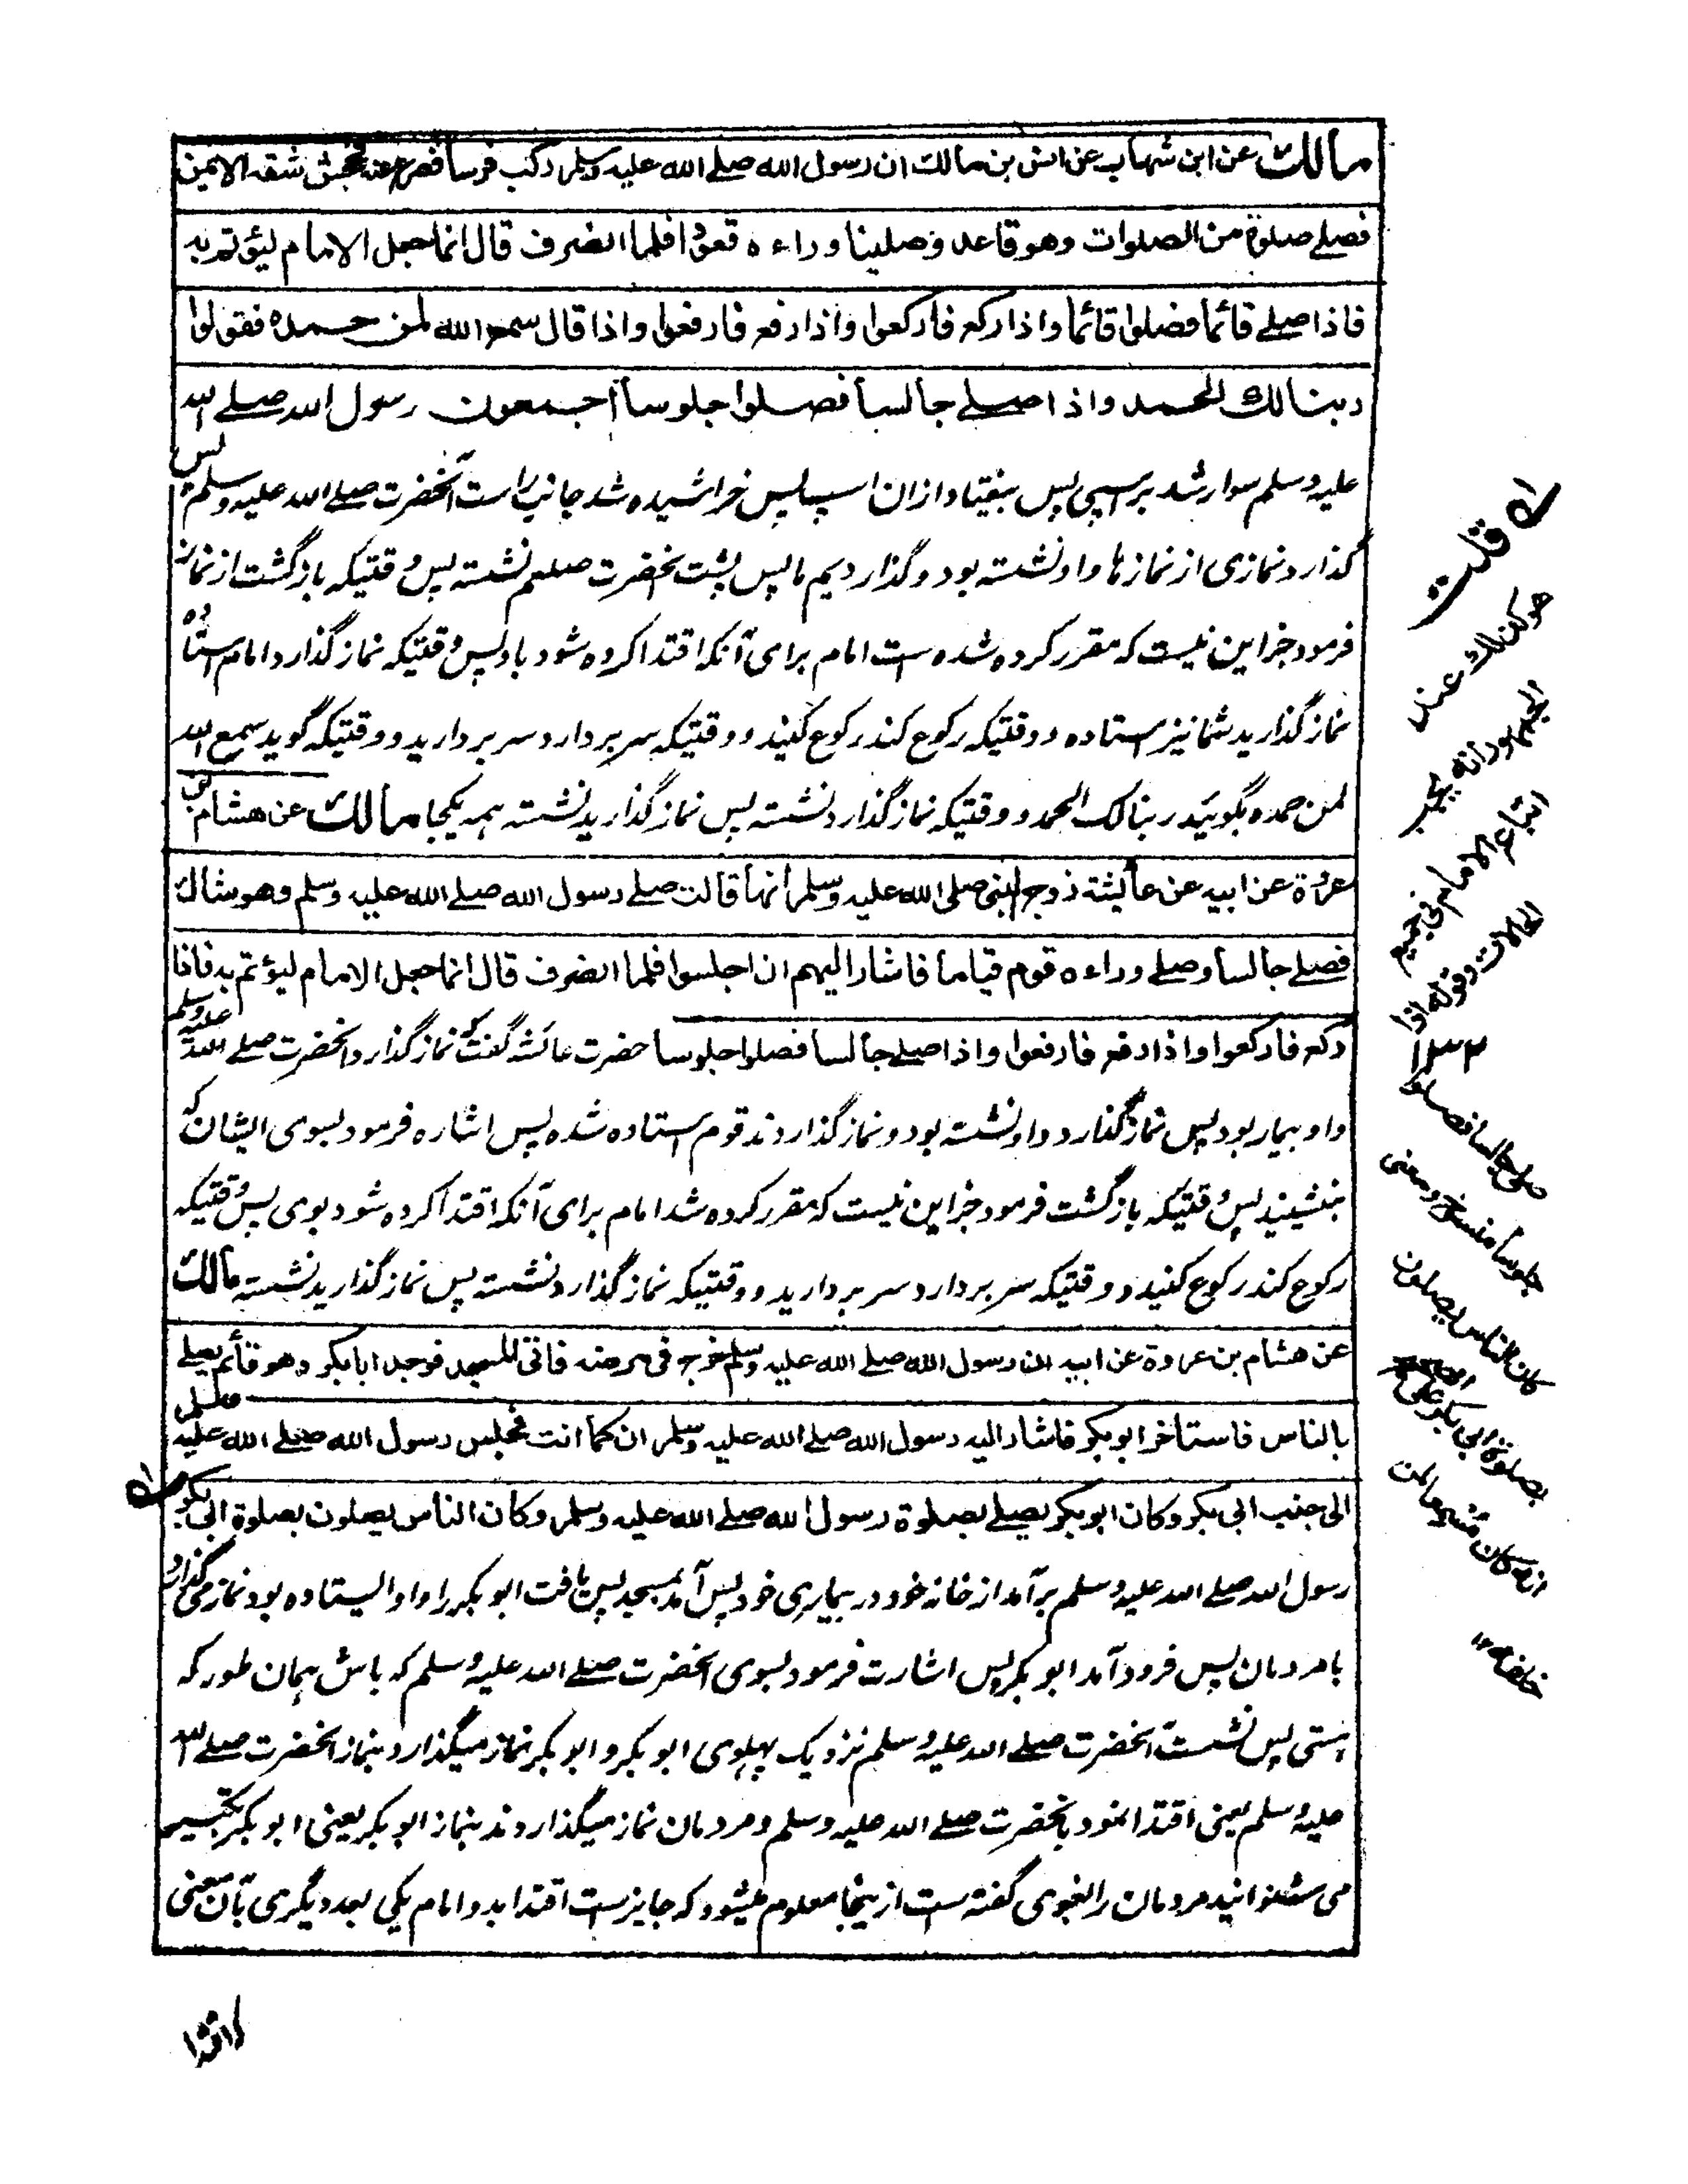 مالك عن ابن شهاب عن انس بن مالك ان رسول الله صلے الله عليه وسلم ركب فرسا فصرع عنه فجحش شقه الايمن
فصلے صلوة من الصلوات وهو قاعد وصلينا وراءه قعودا فلما انصرف قال انما جعل الامام ليؤتم به
فاذا صلے قائما فصلوا قائما واذا ركع فاركعوا واذا رفع فارفعوا واذا قال سمع الله لمن حمده فقولوا
ربنا لك الحمد واذا صلے جالسا فصلوا جلوسا اجمعون رسول الله صلے الله
عليه وسلم سوار شد بر اسپی پس بیفتاد ازان اسپ پس خراشیده شد جانب راست آنحضرت صلے الله علیه وسلم پس
گذارد نمازی از نمازها و او نشسته بود و گذاردیم ما پس پشت آنحضرت صلعم نشسته پس وقتیکه بازگشت از نماز
فرمود جز این نیست که مقرر کرده شده است امام برای آنکه اقتدا کرده شود باو پس وقتیکه نماز گذارد امام استاده
نماز گذارید شما نیز استاده و وقتیکه رکوع کند رکوع کنید و وقتیکه سر بردارد سر بردارید و وقتیکه گوید سمع الله
لمن حمده بگوئید ربنا لک الحمد و وقتیکه نماز گذارد نشسته پس نماز گذارید نشسته همه یکجا مالك عن هشام بن
عروة عن ابيه عن عائشة زوج النبی صلی الله عليه وسلم انها قالت صلے رسول الله صلے الله عليه وسلم وهو شاك
فصلے جالسا وصلے وراءه قوم قياما فاشار اليهم ان اجلسوا فلما انصرف قال انما جعل الامام ليؤتم به فاذا
ركع فاركعوا واذا رفع فارفعوا واذا صلے جالسا فصلوا جلوسا حضرت عائشه گفت که نماز گذارد آنحضرت صلے الله علیه وسلم
و او بیمار بود پس نماز گذارد و او نشسته بود و نماز گذاردند قوم استاده شده پس اشاره فرمود بسوی ایشان که
بنشینید پس وقتیکه بازگشت فرمود جز این نیست که مقرر کرده شد امام برای آنکه اقتدا کرده شود بوی پس وقتیکه
رکوع کند رکوع کنید و وقتیکه سر بردارد سر بردارید و وقتیکه نماز گذارد نشسته پس نماز گذارید نشسته مالك
عن هشام بن عروة عن ابيه ان رسول الله صلے الله عليه وسلم خرج فی مرضه فاتی المسجد فوجد ابا بكر وهو قائم يصلے
بالناس فاستاخر ابو بكر فاشار اليه رسول الله صلے الله عليه وسلم ان كما انت فجلس رسول الله صلے الله عليه وسلم
الی جنب ابی بكر وكان ابو بكر يصلے بصلوة رسول الله صلے الله عليه وسلم وكان الناس يصلون بصلوة ابی بكر
رسول الله صلے الله علیه وسلم برآمد از خانه خود در بیماری خود پس آمد بمسجد پس یافت ابو بکر را و او ایستاده بود نماز می گذارد
با مردمان پس فرود آمد ابو بکر پس اشارت فرمود بسوی آنحضرت صلے الله علیه وسلم که باش بهمان طور که
هستی پس نشست آنحضرت صلے الله علیه وسلم نزدیک پهلوی ابو بکر و ابو بکر نماز میگذارد بنماز آنحضرت صلے الله
علیه وسلم یعنی اقتدا نمود بآنحضرت صلے الله علیه وسلم و مردمان نماز میگذاردند بنماز ابو بکر یعنی ابو بکر تکبیر
می شنوانید مردمان را بغوی گفته است ازینجا معلوم میشود که جایز است اقتدا بدو امام یکی بعد دیگری بآن معنی
له قلت
هو كذلك عند
الجمهور انه يجب
اتباع الامام فی جميع
الحالات وقوله اذا
صلی جالسا فصلوا
جلوسا منسوخ ومعنی
كان الناس يصلون
بصلوة ابی بكر
انه كان
خلفه ۱۲